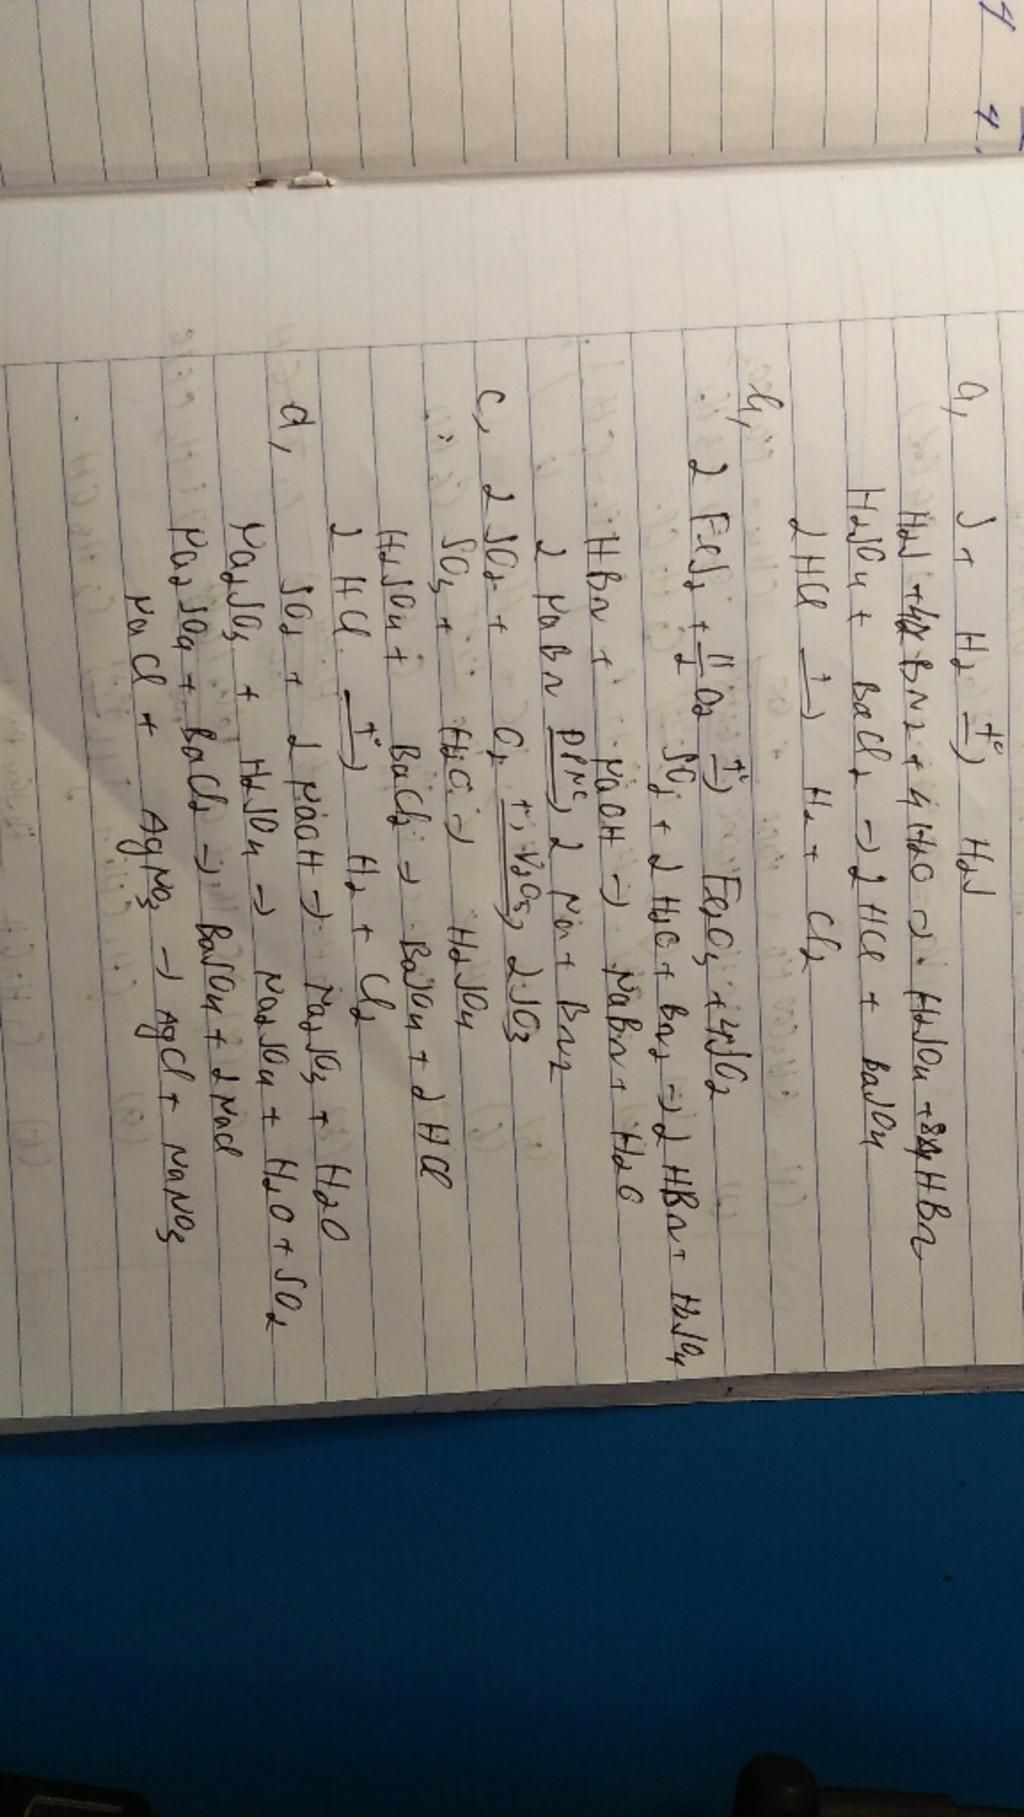 a, S + H2 t° → H2S
H2S + 4 Br2 + 4 H2O → H2SO4 + 8 HBr
H2SO4 + BaCl2 → 2 HCl + BaSO4
2 HCl t° → H2 + Cl2
b,
2 FeS2 + 11/2 O2 t° → Fe2O3 + 4 SO2
SO2 + 2 H2O + Br2 → 2 HBr + H2SO4
HBr + NaOH → NaBr + H2O
2 NaBr ĐPNC → 2 Na + Br2
c, 2 SO2 + O2 t°, V2O5 → 2 SO3
SO3 + H2O → H2SO4
H2SO4 + BaCl2 → BaSO4 + 2 HCl
2 HCl t° → H2 + Cl2
d, SO2 + 2 NaOH → Na2SO3 + H2O
Na2SO3 + H2SO4 → Na2SO4 + H2O + SO2
Na2SO4 + BaCl2 → BaSO4 + 2 NaCl
NaCl + AgNO3 → AgCl + NaNO3